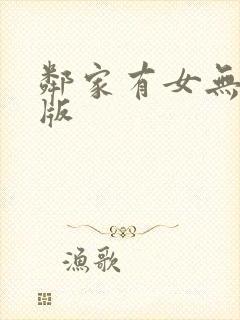 鄰家有女無
版
漁歌